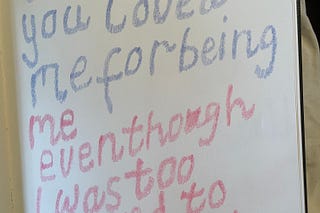 you loved
me for being
me
eventhough
I was too
to